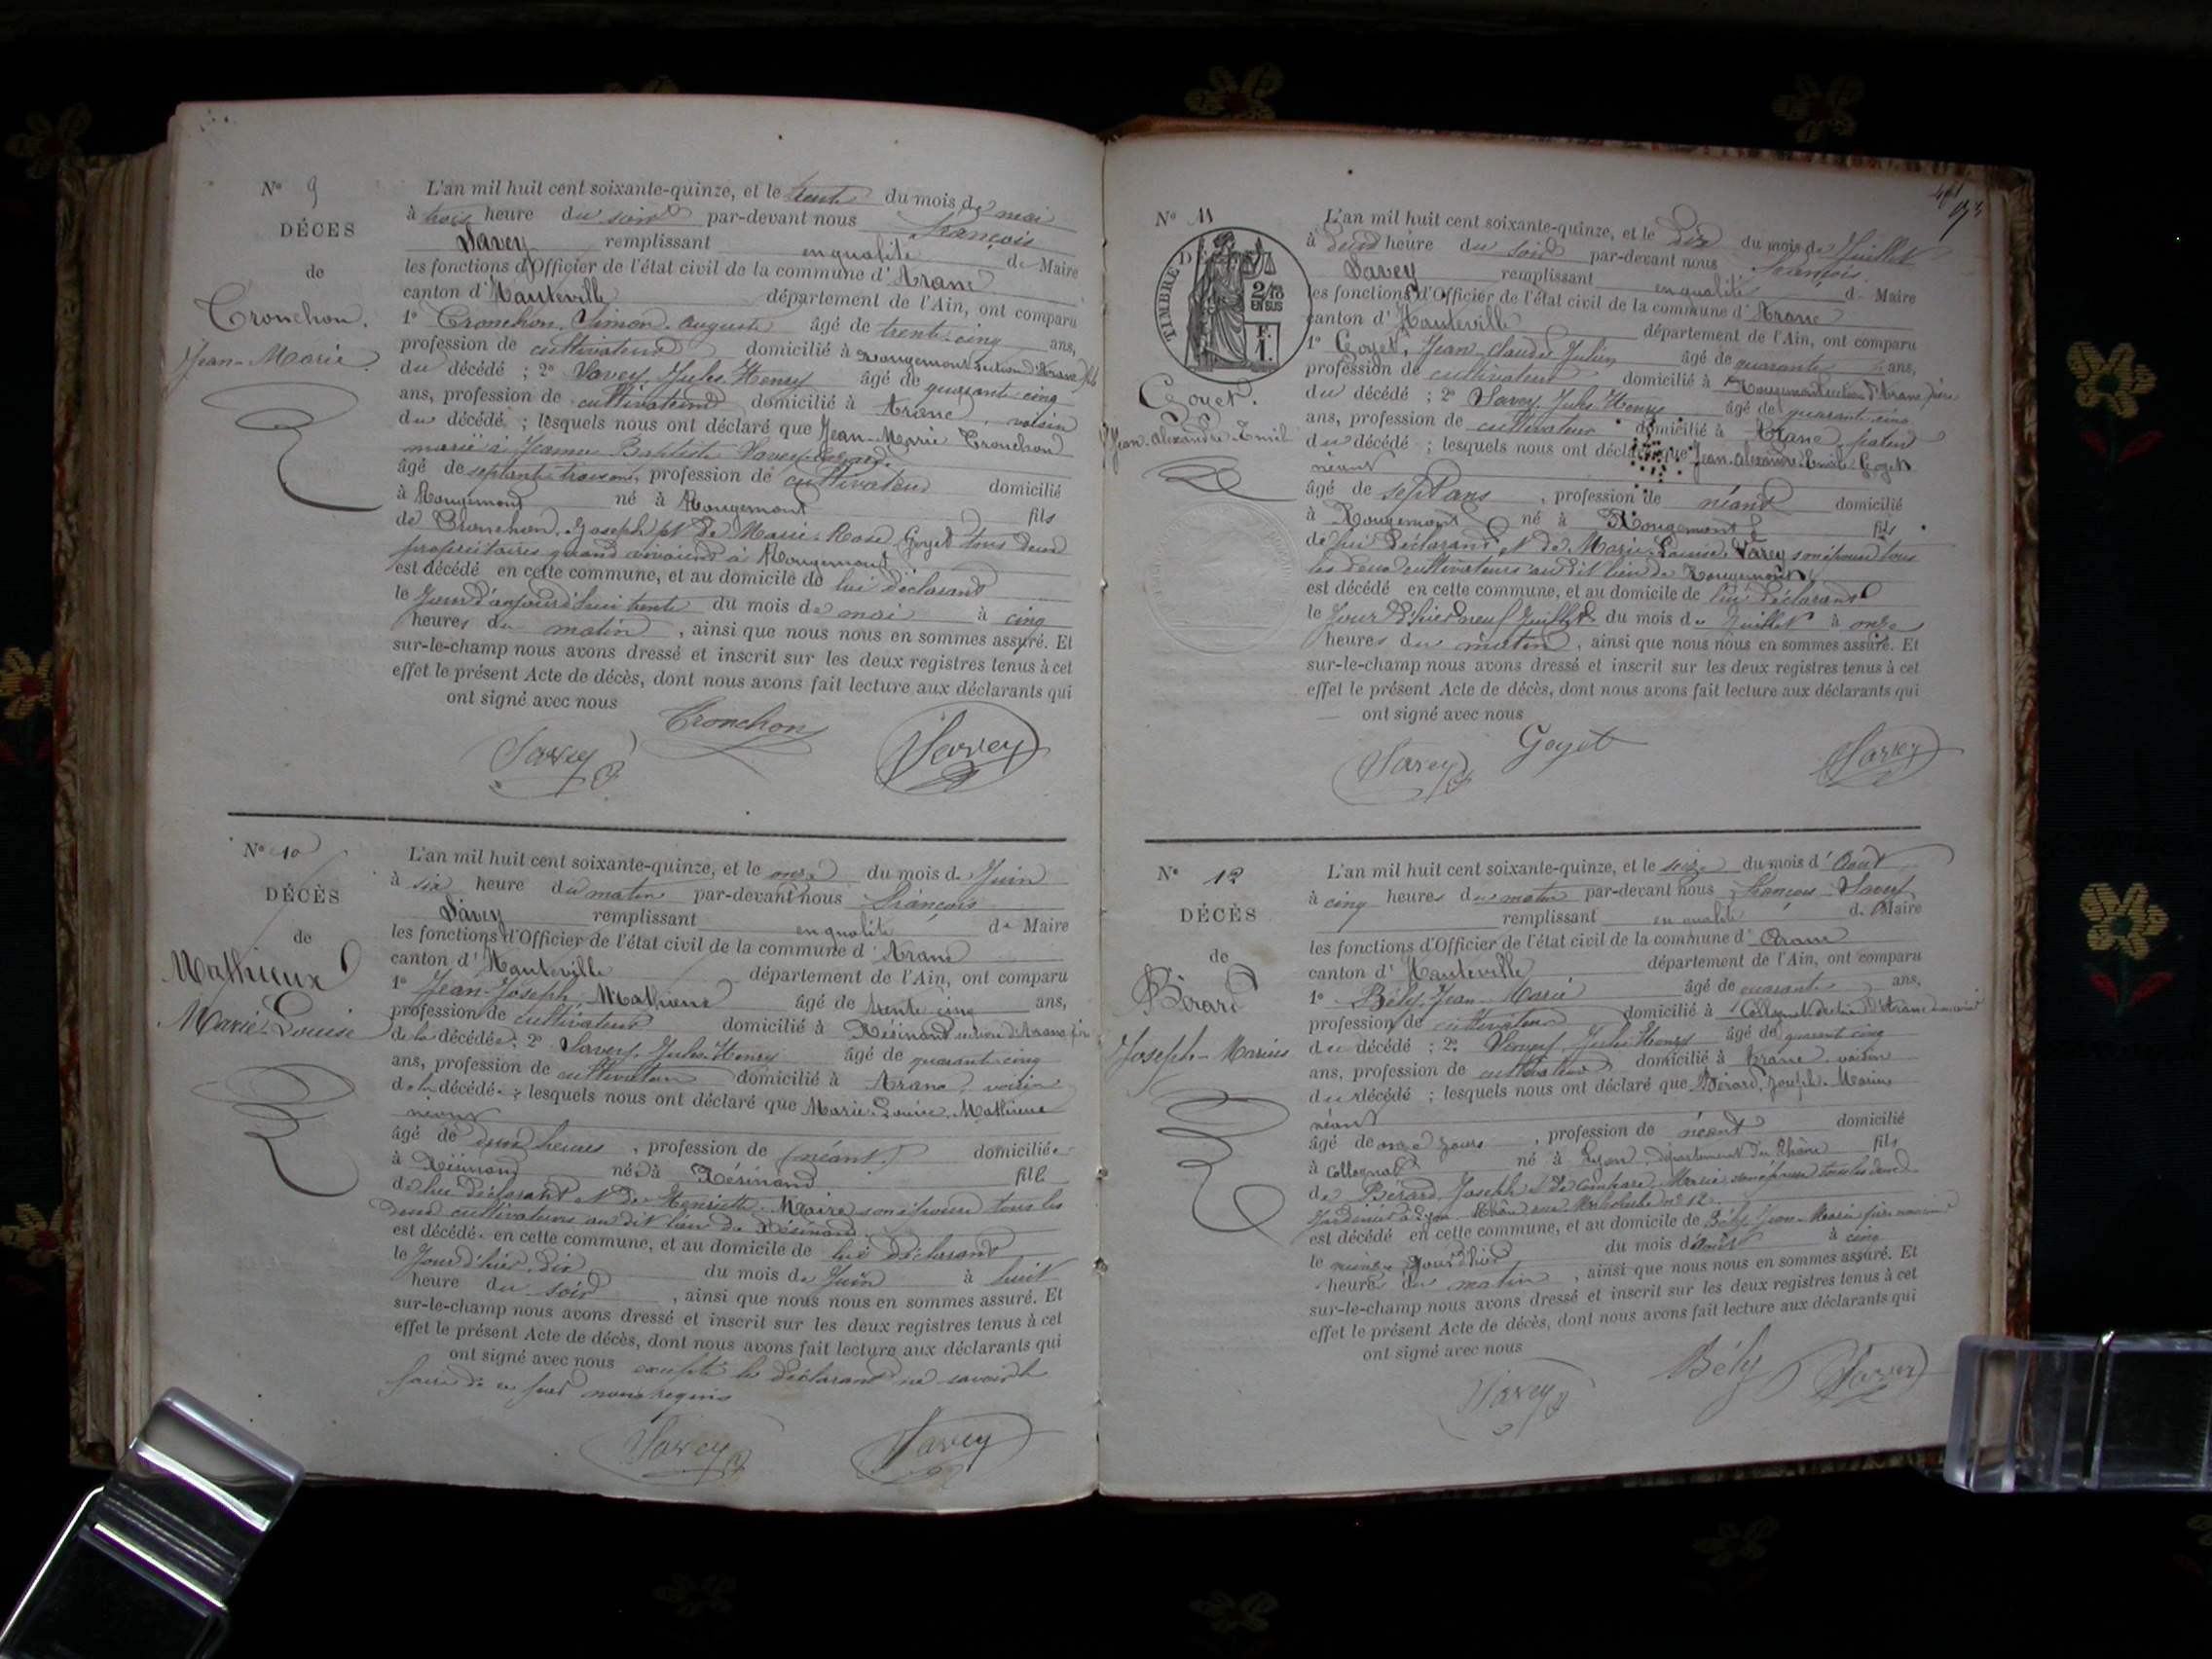 N° 9
DÉCES
de
Cronchon.
Jean-Marie
L'an mil huit cent soixante-quinze, et le trente du mois de mai
à trois heure du soir par-devant nous François
Savey remplissant en qualité de Maire
les fonctions d'Officier de l'état civil de la commune d'Aranc
canton d'Hauteville département de l'Ain, ont comparu
1° Cronchon, Simon, Auguste âgé de trente-cinq ans,
profession de cultivateur domicilié à Rougemont section d'Aranc fils
du décédé ; 2° Savey, Jules-Henry âgé de quarante-cinq
ans, profession de cultivateur domicilié à Aranc, voisin
du décédé ; lesquels nous ont déclaré que Jean-Marie Cronchon
marié à Jeanne Baptiste Savey
âgé de septante trois ans, profession de cultivateur domicilié
à Rougemont né à Rougemont fils
de Cronchon, Joseph et de Marie-Rose Goyet tous deux
propriétaires quand vivaient à Rougemont
est décédé en cette commune, et au domicile de lui déclarant
le Jour d'aujourd'hui trente du mois de mai à cinq
heures du matin, ainsi que nous nous en sommes assuré. Et
sur-le-champ nous avons dressé et inscrit sur les deux registres tenus à cet
effet le présent Acte de décès, dont nous avons fait lecture aux déclarants qui
ont signé avec nous
Cronchon
Savey Savey
N° 10
DÉCÈS
de
Mathieux
Marie-Louise
L'an mil huit cent soixante-quinze, et le onze du mois de Juin
à six heure du matin par-devant nous François
Savey remplissant en qualité de Maire
les fonctions d'Officier de l'état civil de la commune d'Aranc
canton d'Hauteville département de l'Ain, ont comparu
1° Jean-Joseph, Mathieux âgé de trente cinq ans,
profession de cultivateur domicilié à Résinand section d'Aranc
de la décédée ; 2° Savey, Jules-Henry âgé de quarante-cinq
ans, profession de cultivateur domicilié à Aranc, voisin
de la décédé. ; lesquels nous ont déclaré que Marie-Louise, Mathieux
néant
âgé de deux heures, profession de (néant) domiciliée
à Résinand née à Résinand fille
de lui déclarant et de Henriette, Maire son épouse tous les
deux cultivateurs au dit lieu de Résinand
est décédé en cette commune, et au domicile de lui déclarant
le Jour d'hier, dix du mois de Juin à huit
heure du soir, ainsi que nous nous en sommes assuré. Et
sur-le-champ nous avons dressé et inscrit sur les deux registres tenus à cet
effet le présent Acte de décès, dont nous avons fait lecture aux déclarants qui
ont signé avec nous excepté le déclarant ne savoir le
faire de ce par nous requis
Savey Savey
N° 11
TIMBRE
2/10
EN SUS
F.
1.
Goyet.
Jean-Alexandre-Emile
L'an mil huit cent soixante-quinze, et le Dix du mois de Juillet
à deux heure du soir par-devant nous François
Savey remplissant en qualité de Maire
les fonctions d'Officier de l'état civil de la commune d'Aranc
canton d'Hauteville département de l'Ain, ont comparu
1° Goyet, Jean-Claude Julien âgé de quarante ans,
profession de cultivateur domicilié à Rougemont section d'Aranc père
du décédé ; 2° Savey, Jules Henry âgé de quarante-cinq
ans, profession de cultivateur domicilié à Aranc, parent
du décédé ; lesquels nous ont déclaré que Jean-Alexandre-Emile Goyet
néant
âgé de sept ans, profession de néant domicilié
à Rougemont né à Rougemont fils
de lui déclarant et de Marie-Louise, Varey son épouse tous
les deux cultivateurs au dit lieu de Rougemont
est décédé en cette commune, et au domicile de lui déclarant
le Jour d'hier neuf Juillet du mois de Juillet à onze
heures du matin, ainsi que nous nous en sommes assuré. Et
sur-le-champ nous avons dressé et inscrit sur les deux registres tenus à cet
effet le présent Acte de décès, dont nous avons fait lecture aux déclarants qui
ont signé avec nous
Savey Goyet Savey
N° 12
DÉCÈS
de
Bérard
Joseph-Marius
L'an mil huit cent soixante-quinze, et le seize du mois d'Aout
à cinq heures du matin par-devant nous François Savey
remplissant en qualité de Maire
les fonctions d'Officier de l'état civil de la commune d'Aranc
canton d'Hauteville département de l'Ain, ont comparu
1° Bély, Jean-Marie âgé de quarante ans,
profession de cultivateur domicilié à section d'Aranc
du décédé ; 2° Savey Jules Henry âgé de quarent cinq
ans, profession de cultivateur domicilié à Aranc voisin
du décédé ; lesquels nous ont déclaré que Bérard, Joseph-Marius
néant
âgé de onze jours, profession de néant domicilié
à Collognat né à Lyon, département du Rhône fils
de Bérard, Joseph & de Marie, son épouse tous les deux
à Lyon Rhône rue n° 12.
est décédé en cette commune, et au domicile de Bély Jean-Marie
le quinze Jour d'hier du mois d'Aout à cinq
heures du matin, ainsi que nous nous en sommes assuré. Et
sur-le-champ nous avons dressé et inscrit sur les deux registres tenus à cet
effet le présent Acte de décès, dont nous avons fait lecture aux déclarants qui
ont signé avec nous
Savey Bély Savey